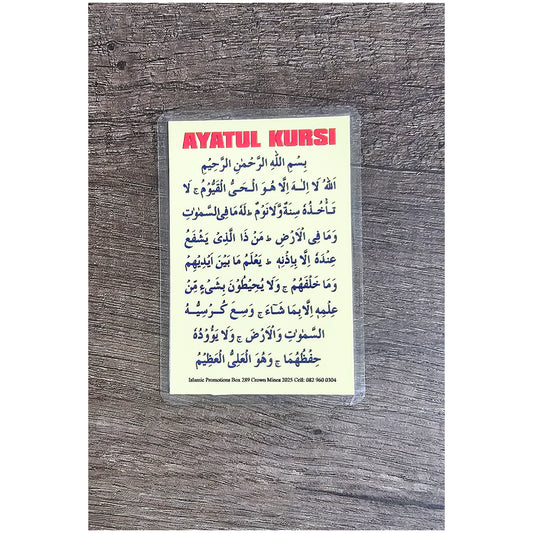 AYATUL KURSI
بِسْمِ اللّٰهِ الرَّحْمٰنِ الرَّحِيْمِ
اَللّٰهُ لَا اِلٰهَ اِلَّا هُوَ الْحَىُّ الْقَيُّوْمُ ۚ لَا
تَأْخُذُهٗ سِنَةٌ وَّلَا نَوْمٌ ؕ لَهٗ مَا فِى السَّمٰوٰتِ
وَمَا فِى الْاَرْضِ ؕ مَنْ ذَا الَّذِىْ يَشْفَعُ
عِنْدَهٗ اِلَّا بِاِذْنِهٖ ؕ يَعْلَمُ مَا بَيْنَ اَيْدِيْهِمْ
وَمَا خَلْفَهُمْ ۚ وَلَا يُحِيْطُوْنَ بِشَىْءٍ مِّنْ
عِلْمِهٖ اِلَّا بِمَا شَآءَ ۚ وَسِعَ كُرْسِيُّهُ
السَّمٰوٰتِ وَالْاَرْضَ ۚ وَلَا يَؤُوْدُهٗ
حِفْظُهُمَا ۚ وَهُوَ الْعَلِىُّ الْعَظِيْمُ
Islamic Promotions Box 289 Crown Mines 2025 Cell: 082 960 0304